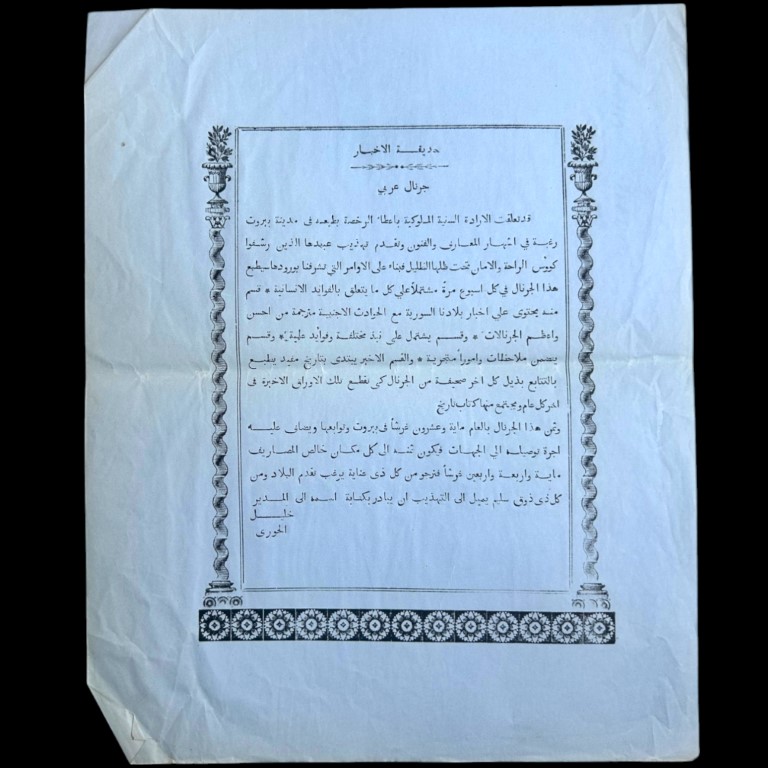 حديقة الاخبار
جرنال عربي
قد تعلقت الارادة السنية الملوكية باعطاء الرخصة بطبعه فى مدينة بيروت
رغبة في اشهار المعارف والفنون وتقدم تهذيب عبيدها الذين رشفوا
كووس الراحة والامان تحت ظلها الظليل فبناء على الاوامر التي تشرفنا بورودها سيطبع
هذا الجرنال في كل اسبوع مرة مشتملاً علي كل ما يتعلق بالفوايد الانسانية * قسم
منه يحتوى علي اخبار بلادنا السورية مع الحوادث الاجنبية مترجمة من احسن
واعظم الجرنالات * وقسم يشتمل على نبذ مختلفة وفوايد علمية * وقسم
يتضمن ملاحظات وامورا متجرية * والقسم الاخير يبتدى بتاريخ مفيد يطبع
بالتتابع بذيل كل اخر صحيفة من الجرنال كى تقطع تلك الاوراق الاخيرة فى
اخر كل عام ويجتمع منها كتاب تاريخ
وثمن هذا الجرنال بالعام ماية وعشرون غرشا فى بيروت وتوابعها ويضاف عليه
اجرة توصيله الي الجهات فيكون ثمنه الى كل مكان خالص المصاريف
ماية واربعة واربعين غرشا فنرجو من كل ذى عناية يرغب تقدم البلاد ومن
كل ذى ذوق سليم يميل الى التهذيب ان يبادر بكتابة اسمه الى المدير
خليل
الخورى